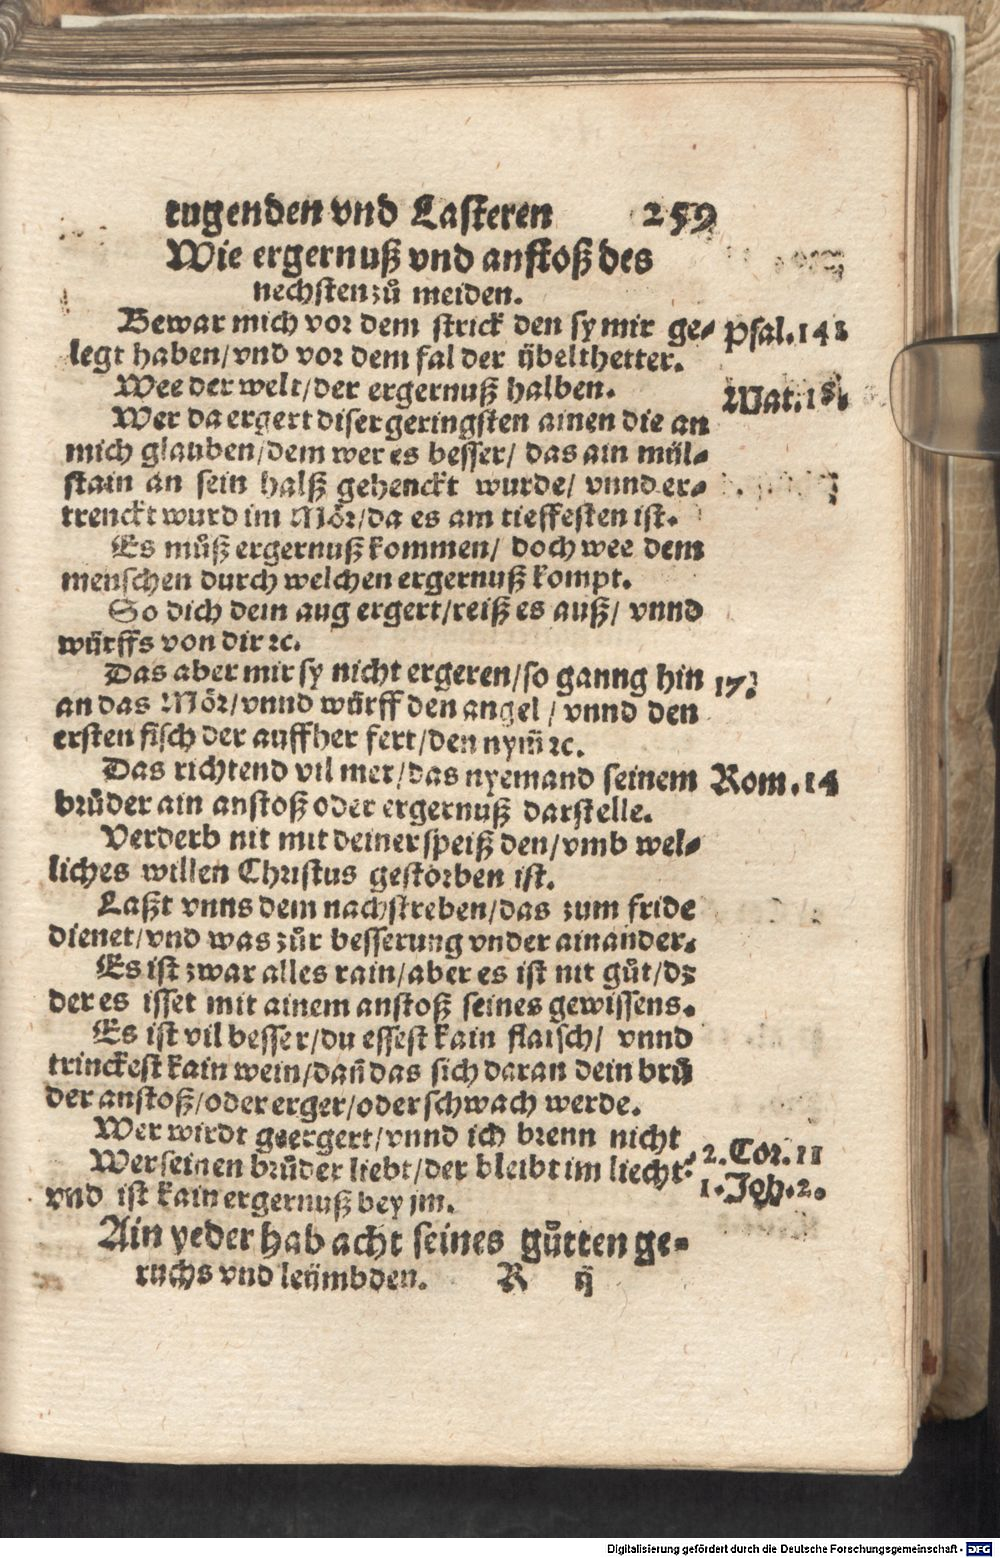 tugenden vnd Lasteren 259
Wie ergernuß vnd anstoß des
nechsten zů meiden.
Bewar mich vor dem strick den sy mir ge⸗ Psal. 14
legt haben/ vnd vor dem fal der ÿbelthetter.
Wee der welt/ der ergernuß halben. Mat. 18
Wer da ergert diser geringsten ainen die an
mich glauben/ dem wer es besser/ das ain mül⸗
stain an sein halß gehenckt wurde/ vnnd er⸗
trenckt wurd im Mör/ da es am tieffesten ist.
Es můß ergernuß kommen/ doch wee dem
menschen durch welchen ergernuß kompt.
So dich dein aug ergert/ reiß es auß/ vnnd
würffs von dir ꝛc.
Das aber mir sy nicht ergeren/ so ganng hin 17.
an das Mör/ vnnd würff den angel/ vnnd den
ersten fisch der auffher fert/ den nym̃ ꝛc.
Das richtend vil mer/ das nyemand seinem Rom. 14
brůder ain anstoß oder ergernuß darstelle.
Verderb nit mit deiner speiß den/ vmb wel⸗
liches willen Christus gestorben ist.
Laßt vnns dem nachstreben/ das zum fride
dienet/ vnd was zůr besserung vnder ainander.
Es ist zwar alles rain/ aber es ist nit gůt/ dz
der es isset mit ainem anstoß seines gewissens.
Es ist vil besser/ du essest kain flaisch/ vnnd
trinckest kain wein/ dañ das sich daran dein brů
der anstoß/ oder erger/ oder schwach werde.
Wer wirdt geergert/ vnnd ich brenn nicht. 2. Cor. 11
Wer seinen brůder liebt/ der bleibt im liecht. 1. Joh. 2.
vnd ist kain ergernuß bey jm.
Ain yeder hab acht seines gůtten ge⸗
ruchs vnd leÿmbden. R ij
Digitalisierung gefördert durch die Deutsche Forschungsgemeinschaft - DFG